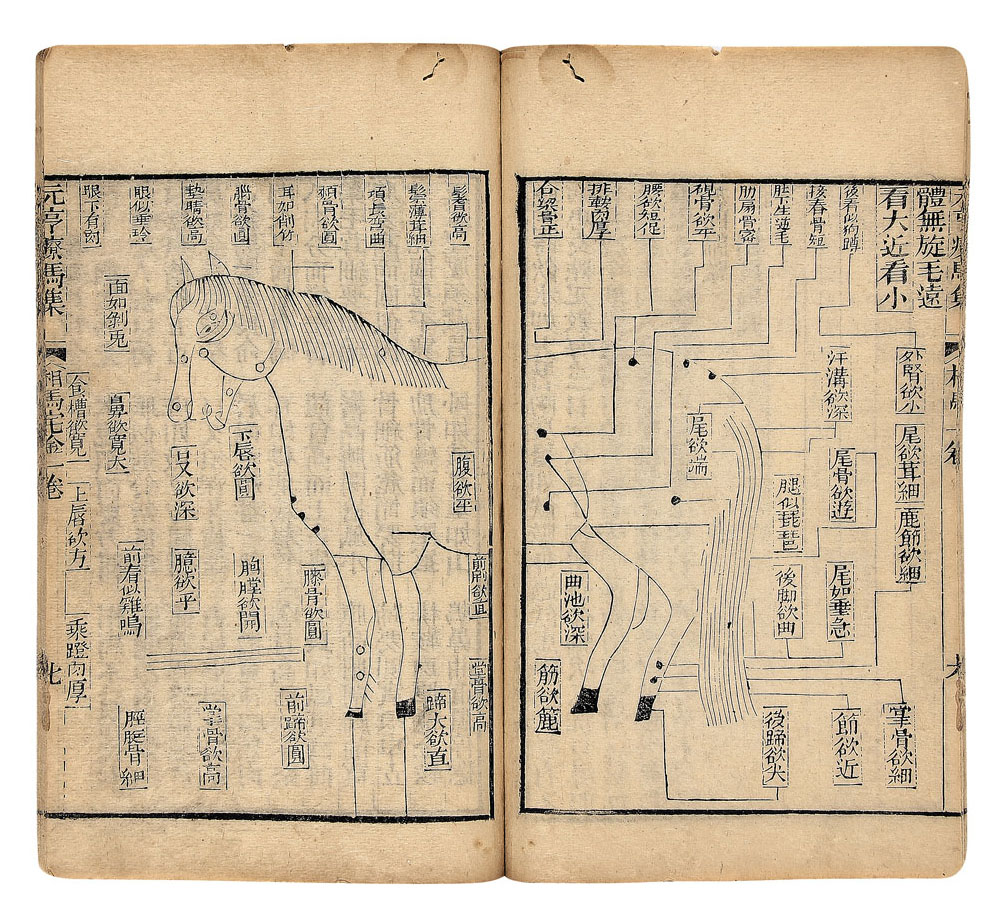 體無旋毛遠
看大近看小
後看似狗蹲
接脊骨短
肚下生逆毛
肋扇骨密
硯骨欲平
腰欲短促
排鞍肉厚
台梁骨正
外腎欲小
汗溝欲深
尾欲茸細
鹿節欲細
尾骨欲遊
尾欲端
腿似琵琶
尾如垂急
後脚欲曲
曲池欲深
筋欲簏
掌骨欲細
節欲近
後蹄欲尖
鬐膏欲高
鬃薄茸細
項長弯曲
頰骨欲圓
耳如削竹
腦骨欲圓
墊睛欲高
眼似垂玲
眼下有肉
面如剝兎
食槽欲寬
鼻欲寬大
口叉欲深
下唇欲圓
上唇欲方
腹欲平
前看似雞鳴
臆欲平
胸膛欲開
膝骨欲圓
前脚欲直
乘蹬肉厚
掌骨欲高
蹄大欲直
前蹄欲圓
掌骨欲高
脛骨細
元亨療馬集
相馬宝金
卷